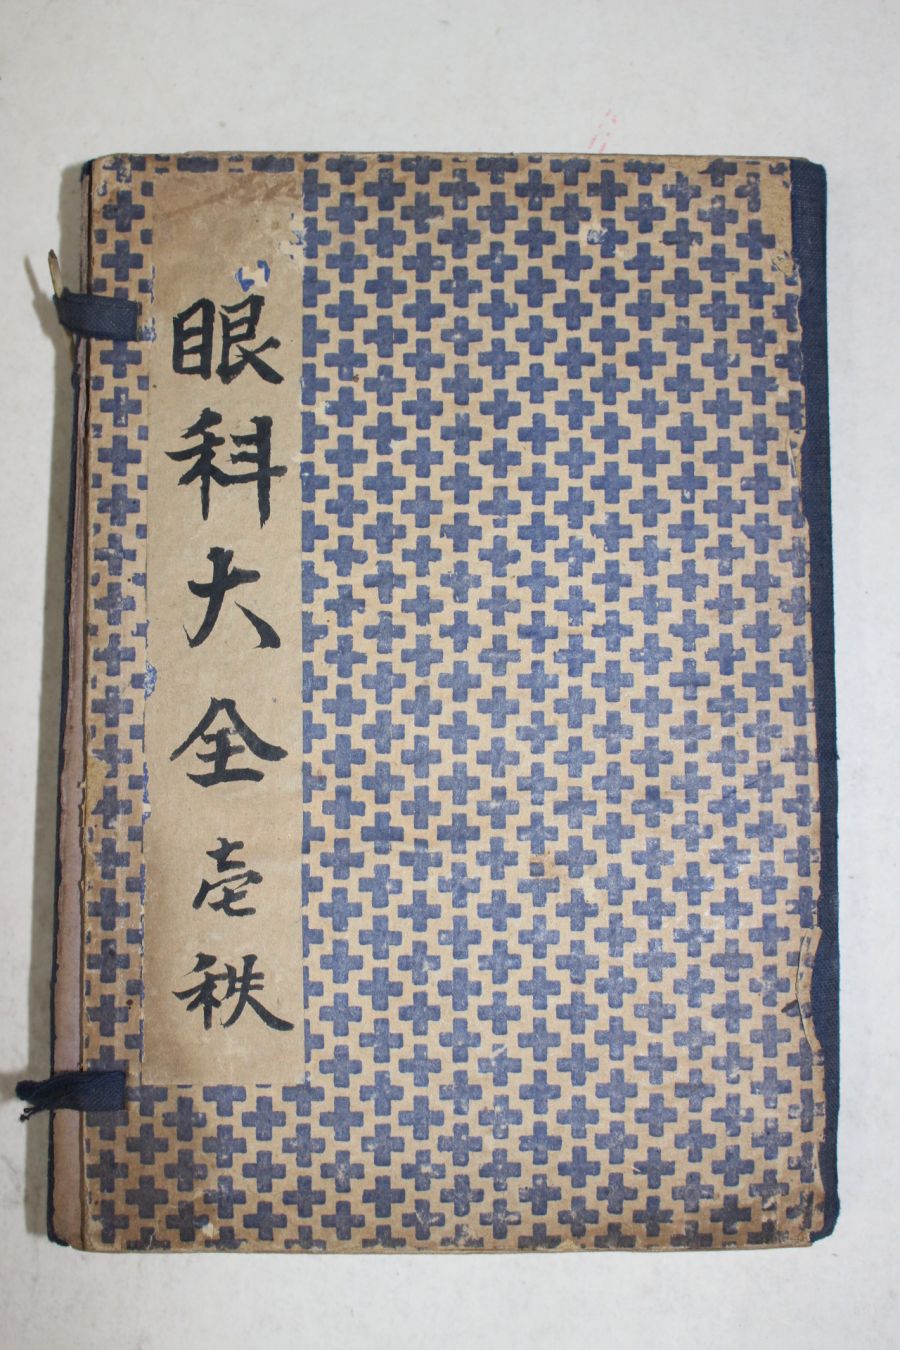 眼科大全壱秩